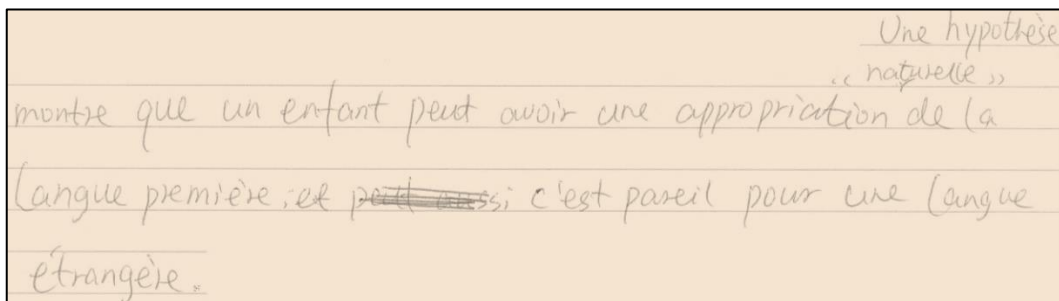 Une hypothèse
« naturelle »
montre que un enfant peut avoir une appropriation de la
langue première et peut aussi c'est pareil pour une langue
étrangère.